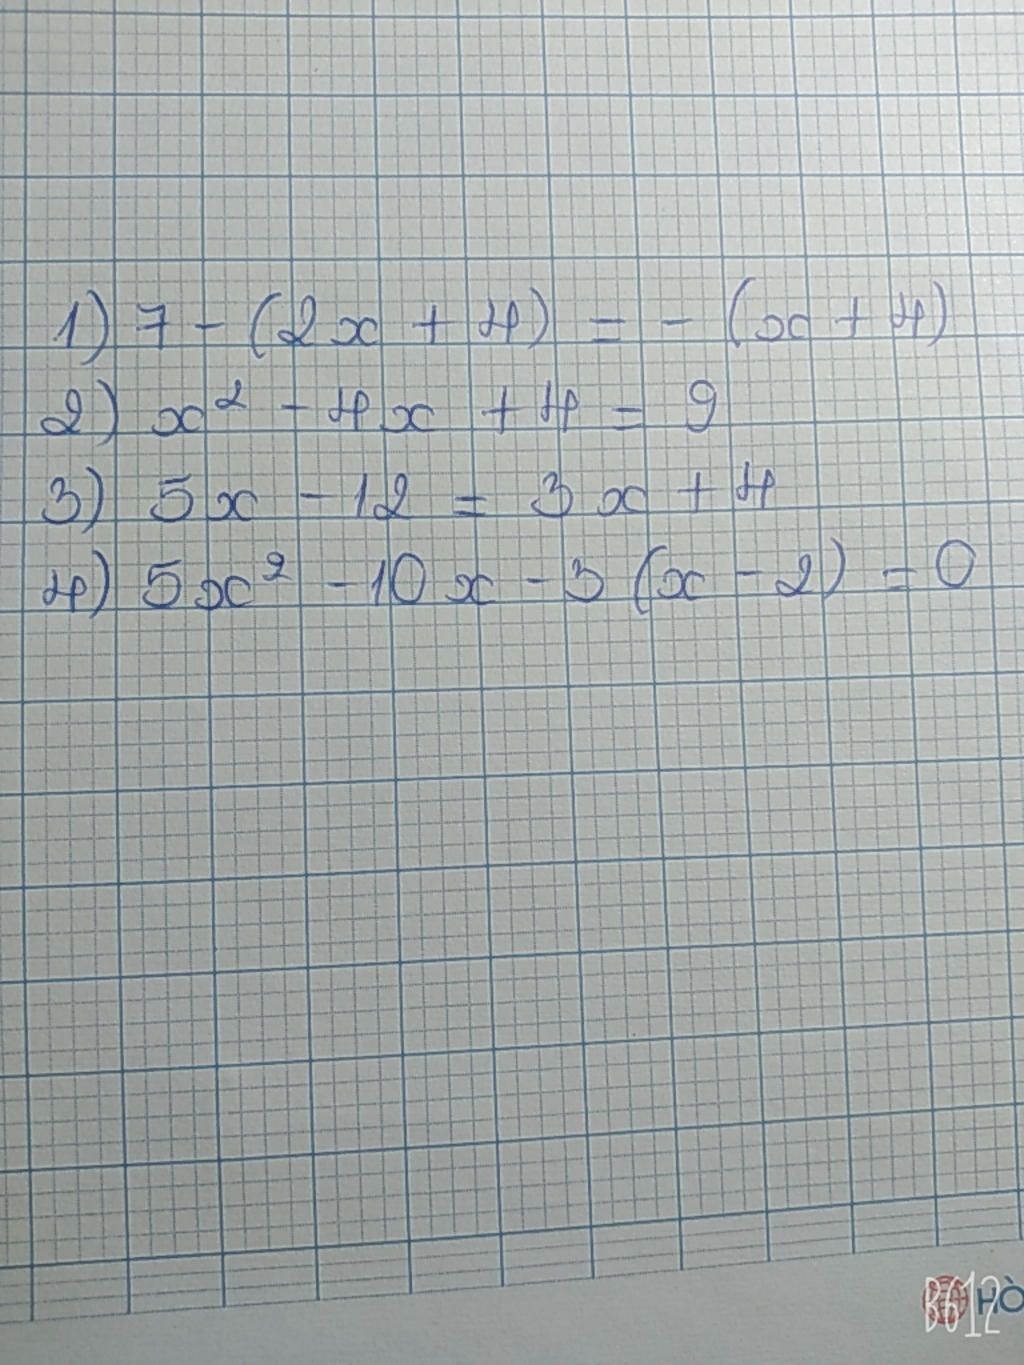 1) 7 - (2x + 4) = - (x + 4)
2) x² - 4x + 4 = 9
3) 5x - 12 = 3x + 4
4) 5x² - 10x - 3 (x - 2) = 0
B612 HÒ